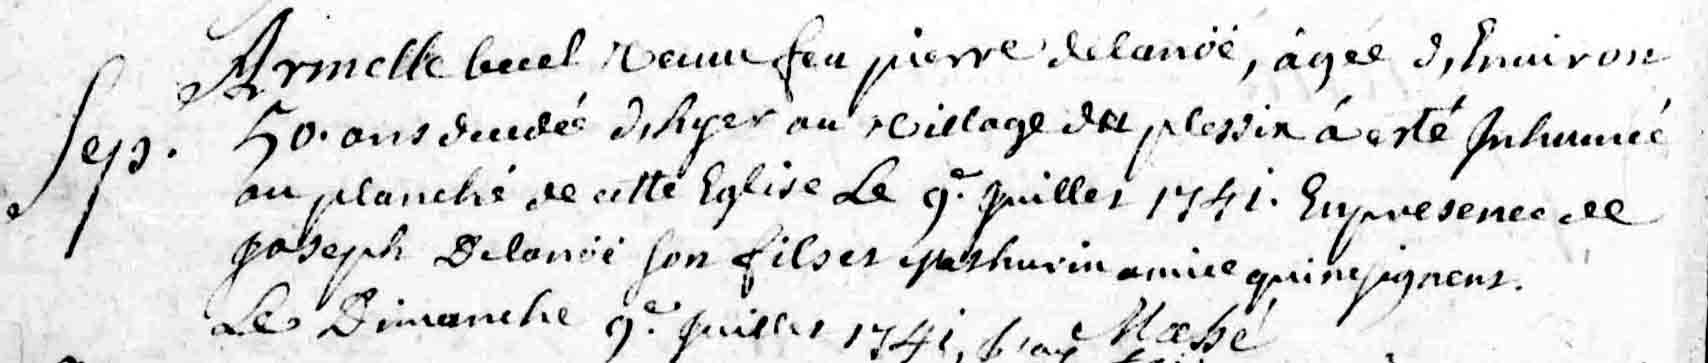 Armelle buel veuve feu pierre delanöé, âgée d'Environ
Sep. 50. ans decedée d'hyer au village du plessix à esté Inhumée
au planché de cette Eglise Le 9.e juillet 1741. En presence de
joseph Delanöé son fils et mathurin amice qui ne signent.
Le Dimanche 9.e juillet 1741,